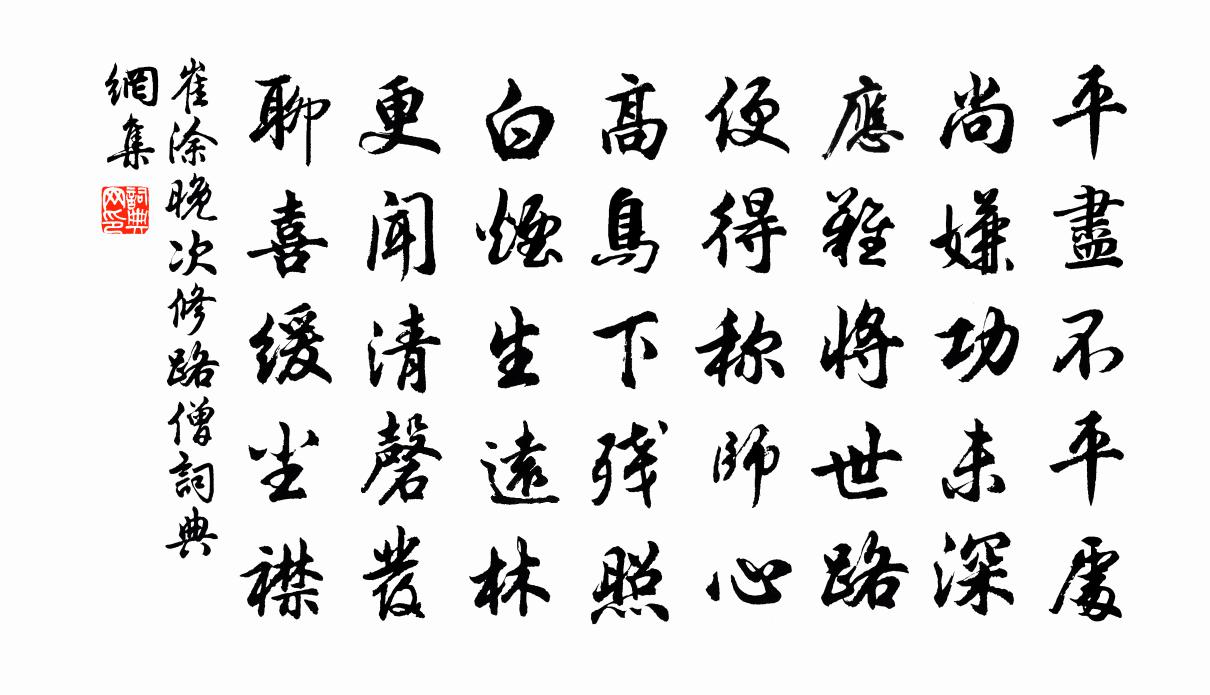 平盡不平處
尚嫌功未深
應難將世路
便得称師心
高鳥下残照
白煙生遠林
更聞清磬發
聊喜緩尘襟
崔涂晚次修路僧詞典
網集
詞典
网印